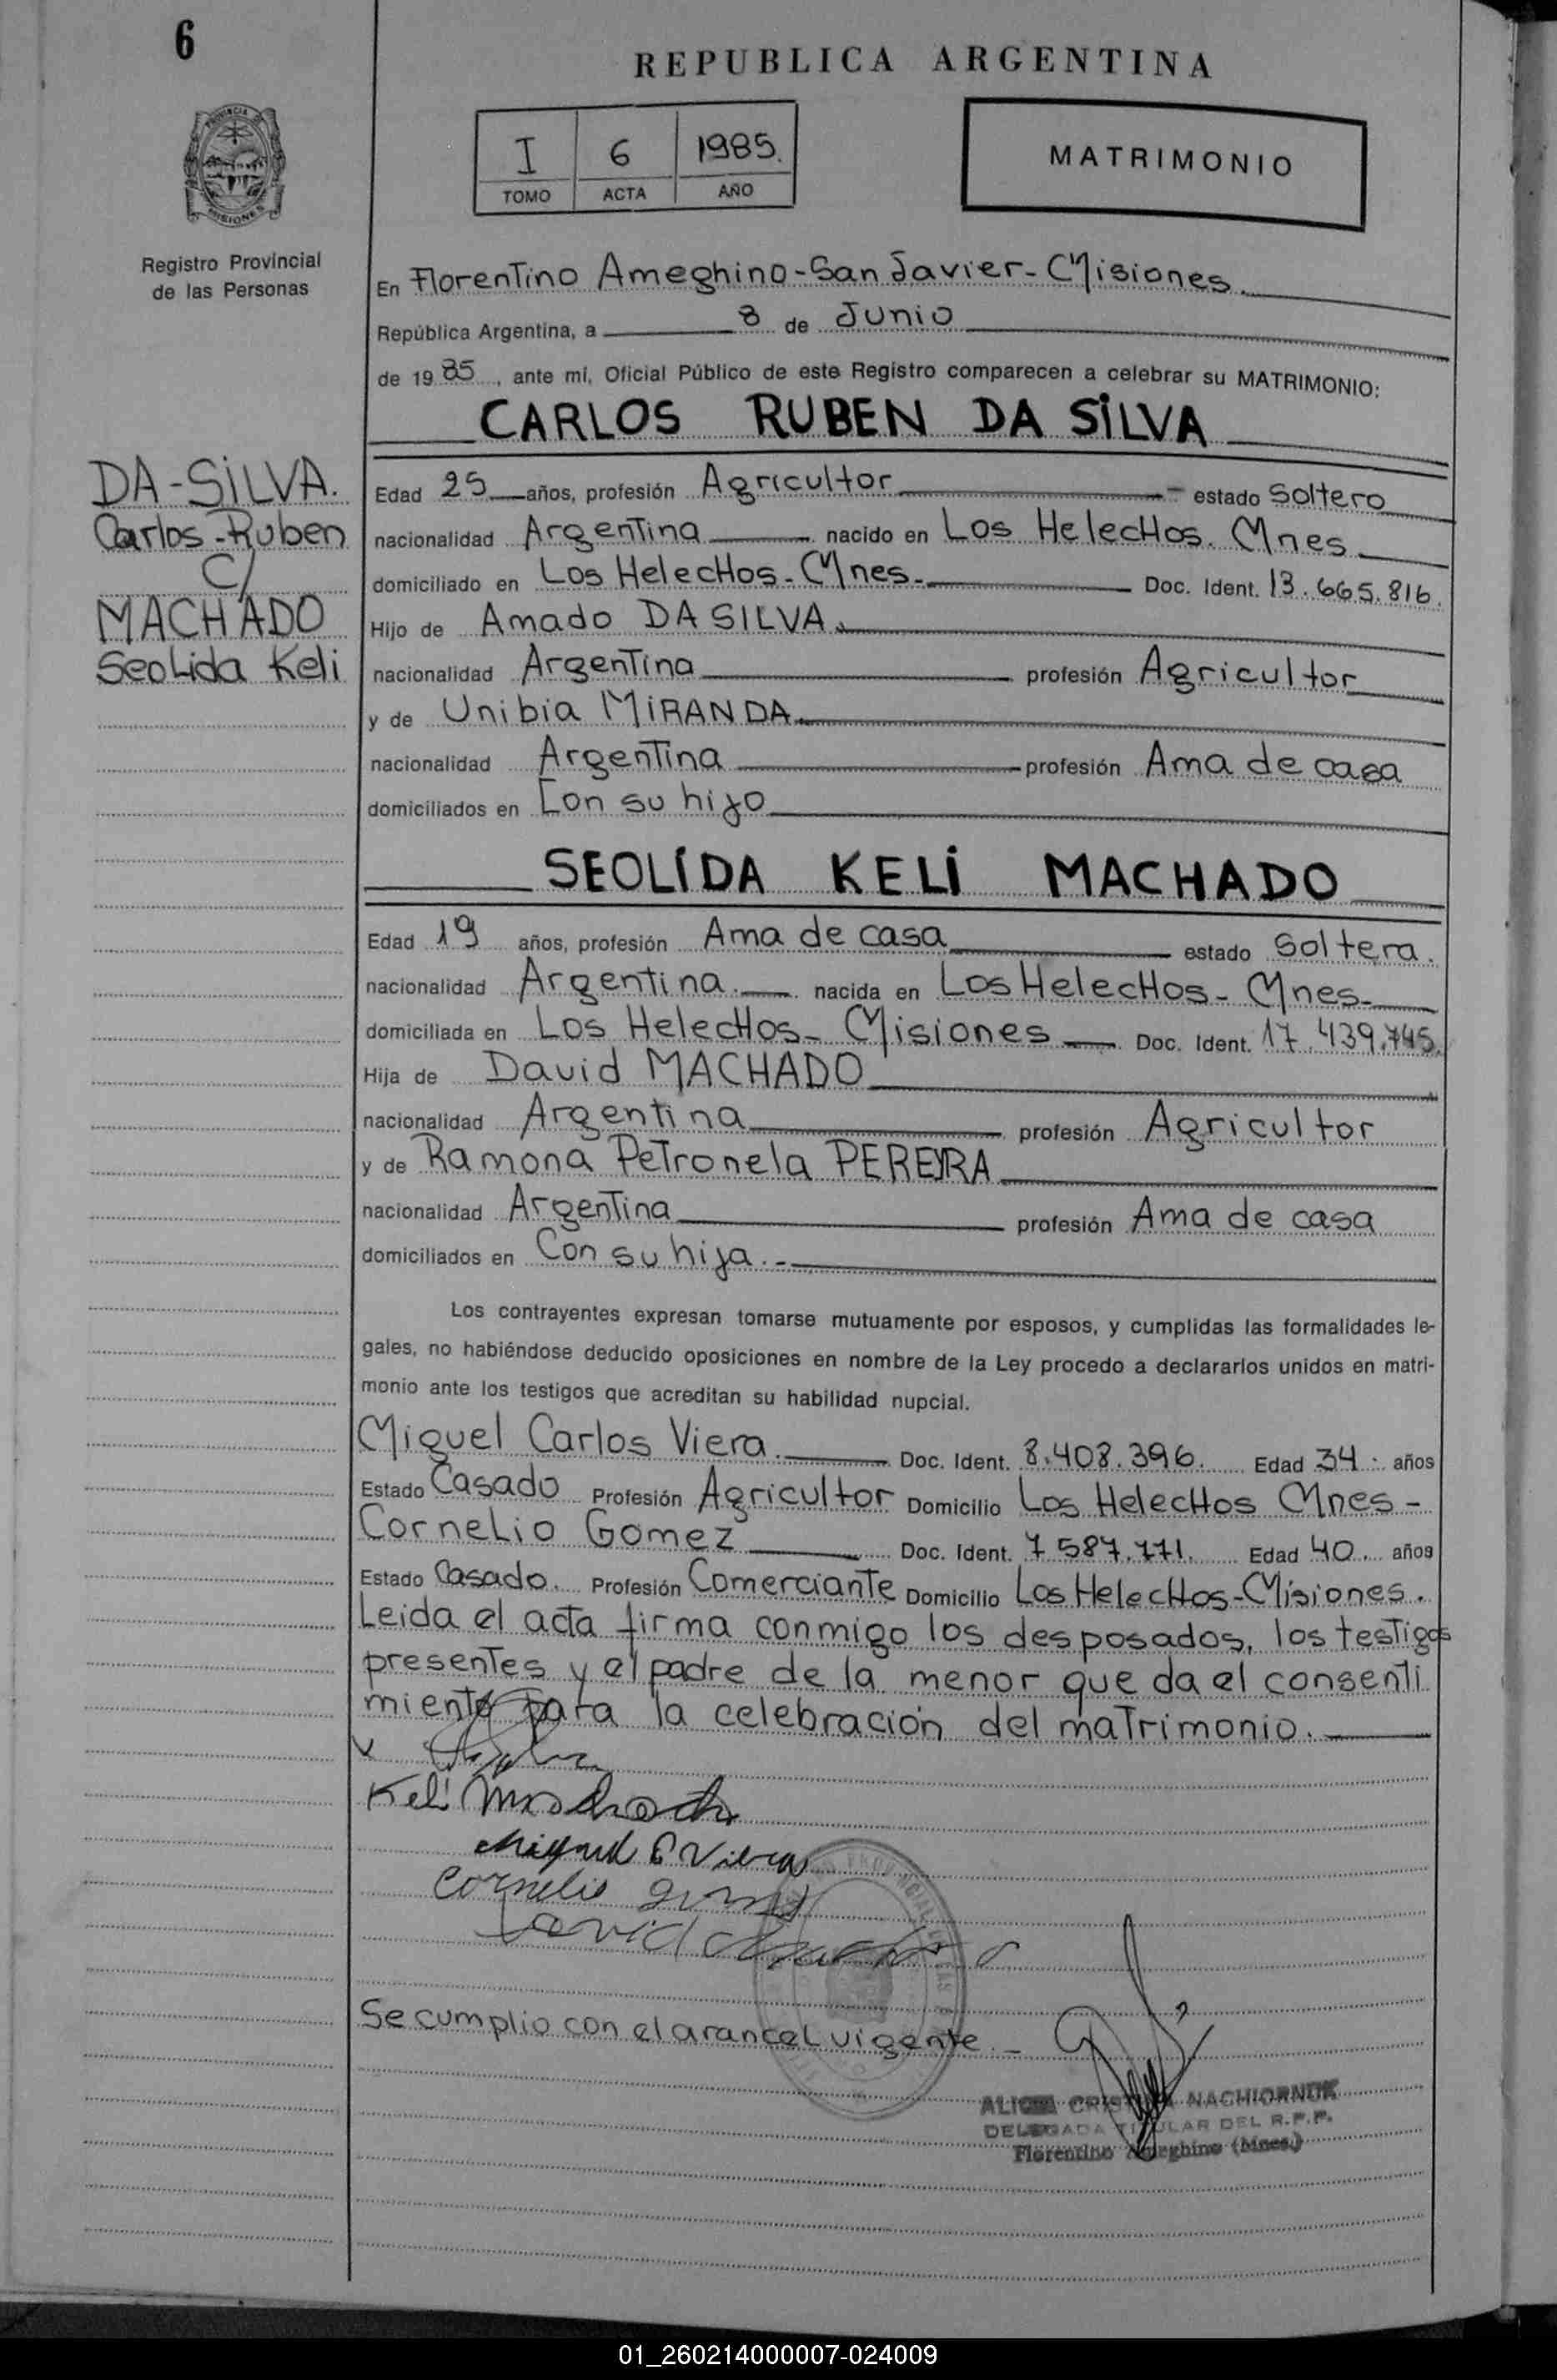 6
REPUBLICA ARGENTINA
I 6 1985.
TOMO ACTA AÑO
MATRIMONIO
PROVINCIA DE
MISIONES
Registro Provincial
de las Personas
En Florentino Ameghino-San Javier-Misiones.
República Argentina, a 8 de Junio
de 1985, ante mí, Oficial Público de este Registro comparecen a celebrar su MATRIMONIO:
CARLOS RUBEN DA SILVA
DA-SILVA.
Carlos-Ruben
C/
MACHADO
Seolida Keli
Edad 25 años, profesión Agricultor estado Soltero
nacionalidad Argentina nacido en Los Helechos. Mnes.
domiciliado en Los Helechos-Mnes- Doc. Ident. 13.665.816.
Hijo de Amado DA SILVA.
nacionalidad Argentina profesión Agricultor
y de Unibia MIRANDA.
nacionalidad Argentina profesión Ama de casa
domiciliados en Con su hijo
SEOLIDA KELI MACHADO
Edad 19 años, profesión Ama de casa estado Soltera.
nacionalidad Argentina. nacida en Los Helechos-Mnes-
domiciliada en Los Helechos-Misiones Doc. Ident. 17.439.745.
Hija de David MACHADO
nacionalidad Argentina profesión Agricultor
y de Ramona Petronela PEREYRA
nacionalidad Argentina profesión Ama de casa
domiciliados en Con su hija.-
Los contrayentes expresan tomarse mutuamente por esposos, y cumplidas las formalidades le-
gales, no habiéndose deducido oposiciones en nombre de la Ley procedo a declararlos unidos en matri-
monio ante los testigos que acreditan su habilidad nupcial.
Miguel Carlos Viera. Doc. Ident. 8.408.396. Edad 34. años
Estado Casado Profesión Agricultor Domicilio Los Helechos Mnes-
Cornelio Gomez Doc. Ident. 7587.771. Edad 40. años
Estado Casado. Profesión Comerciante Domicilio Los Helechos-Misiones.
Leida el acta firma conmigo los desposados, los testigos
presentes y el padre de la menor que da el consenti
miento para la celebración del matrimonio.
Keli Machado
Miguel C Viera
Cornelio Gomez
David Machado
Se cumplio con el arancel vigente.-
ALICIA CRISTINA NACHIORNUK
DELEGADA TITULAR DEL R.P.P.
Florentino Ameghino (Mnes.)
01_260214000007-024009